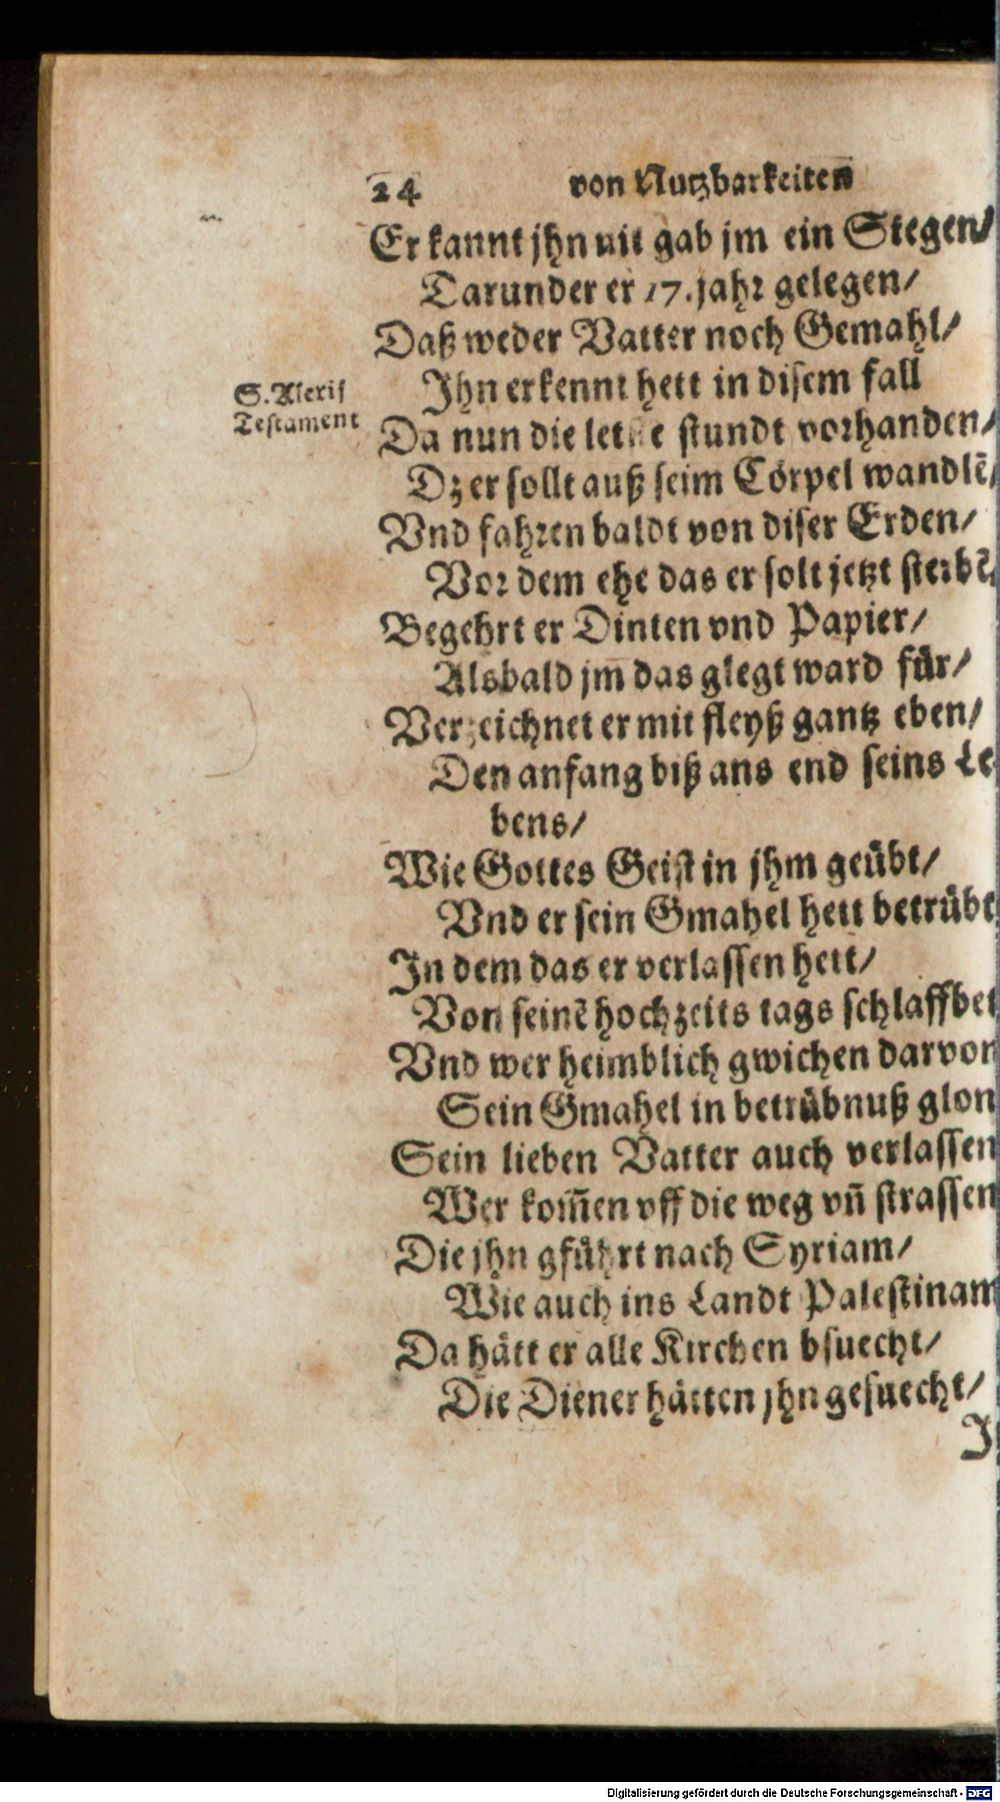 24 von Nutzbarkeiten
Er kannt jhn nit gab jm ein Stegen/
Darunder er 17. jahr gelegen/
Daß weder Vatter noch Gemahl/
S. Alexij
Testament
Ihn erkennt hett in disem fall
Da nun die letste stundt vorhanden/
Dz er sollt auß seim Cörpel wandlẽ/
Vnd fahren baldt von diser Erden/
Vor dem ehe das er solt jetzt sterbẽ/
Begehrt er Dinten vnd Papier/
Alsbald jm das glegt ward für/
Verzeichnet er mit fleyß gantz eben/
Den anfang biß ans end seins Le
bens/
Wie Gottes Geist in jhm geübt/
Vnd er sein Gmahel hett betrübt
In dem das er verlassen hett/
Von seinẽ hochzeits tags schlaffbet
Vnd wer heimblich gwichen darvon
Sein Gmahel in betrübnuß glon
Sein lieben Vatter auch verlassen
Wer kom̃en vff die weg vñ strassen
Die jhn gführt nach Syriam/
Wie auch ins Landt Palestinam
Da hätt er alle Kirchen bsuecht/
Die Diener hätten jhn gesuecht/
J
Digitalisierung gefördert durch die Deutsche Forschungsgemeinschaft - DFG